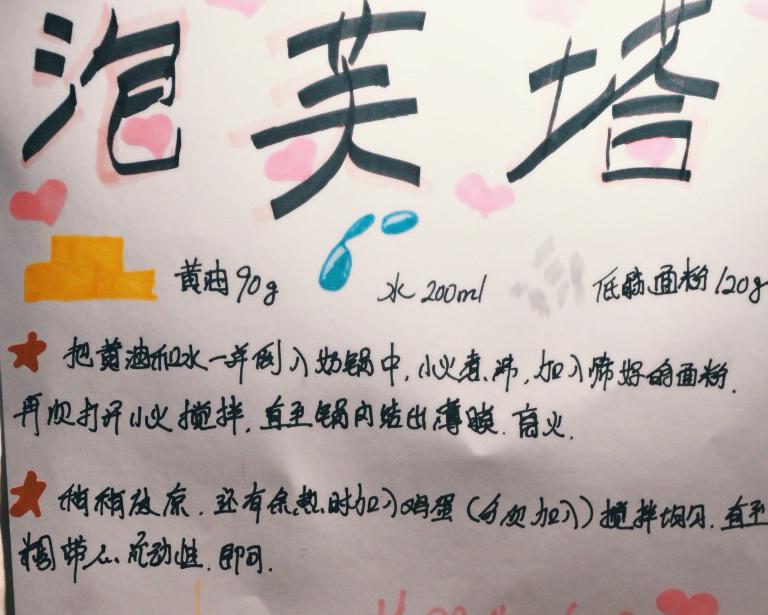 泡芙塔
黄油90g 水200ml 低筋面粉120g
把黄油和水一并倒入奶锅中,小火煮沸,加入筛好的面粉.
再次打开小火搅拌,直至锅内结出薄膜.离火.
稍稍放凉.还有余热时加入鸡蛋(分次加入)搅拌均匀.直至
稠带 流动性.即可.